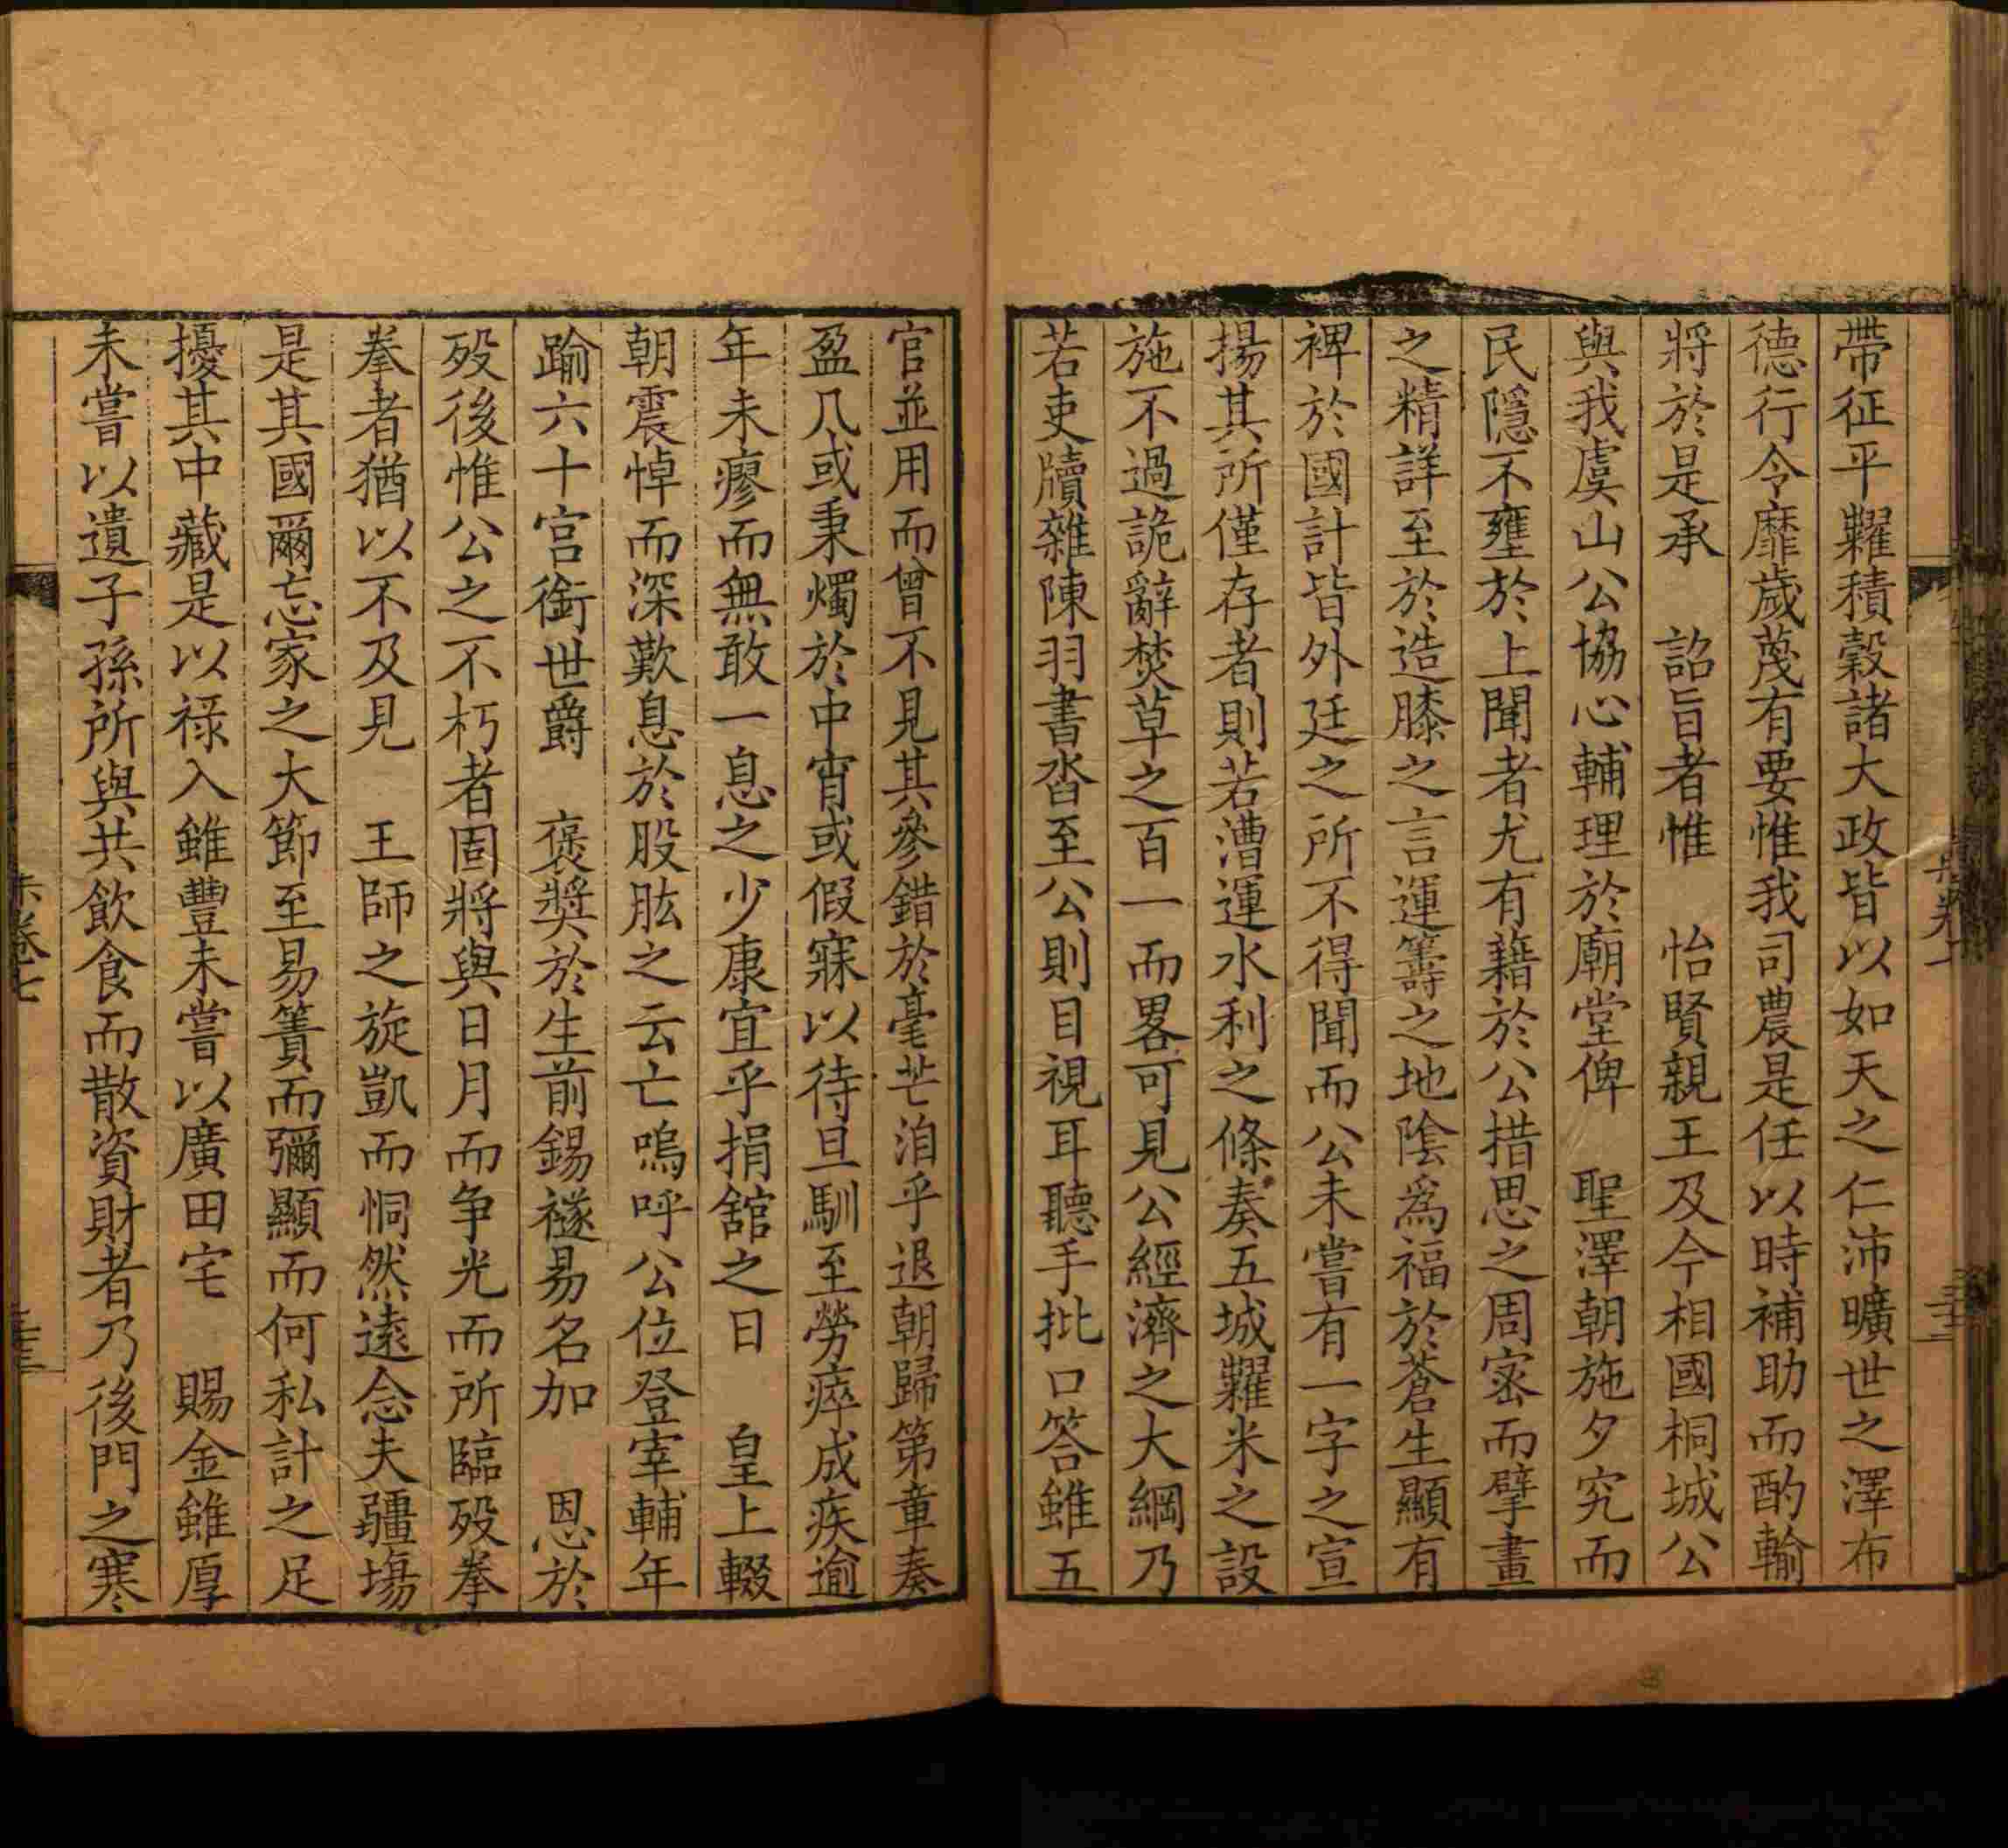 帶征平糶積穀諸大政皆以如天之仁沛曠世之澤布
德行令靡歲蔑有要惟我司農是任以時補助而酌輸
將於是承　詔旨者惟　怡賢親王及今相國桐城公
與我虞山公協心輔理於廟堂俾　聖澤朝施夕究而
民隱不壅於上聞者尤有藉於公措思之周密而擘畫
之精詳至於造膝之言運籌之地陰爲福於蒼生顯有
裨於國計皆外廷之所不得聞而公未嘗有一字之宣
揚其所僅存者則若漕運水利之條奏五城糶米之設
施不過詭辭焚草之百一而畧可見公經濟之大綱乃
若吏牘雜陳羽書沓至公則目視耳聽手批口答雖五
官並用而曾不見其參錯於毫芒洎乎退朝歸第章奏
盈几或秉燭於中宵或假寐以待旦馴至勞瘁成疾逾
年未瘳而無敢一息之少康宜乎捐舘之日　皇上輟
朝震悼而深歎息於股肱之云亡嗚呼公位登宰輔年
踰六十宮銜世爵　褒奬於生前錫禭易名加　恩於
歿後惟公之不朽者固將與日月而争光而所臨歿拳
拳者猶以不及見　王師之旋凱而恫然遠念夫疆塲
是其國爾忘家之大節至易簀而彌顯而何私計之足
擾其中藏是以祿入雖豐未嘗以廣田宅　賜金雖厚
未嘗以遺子孫所與共飲食而散資財者乃後門之寒
卷七